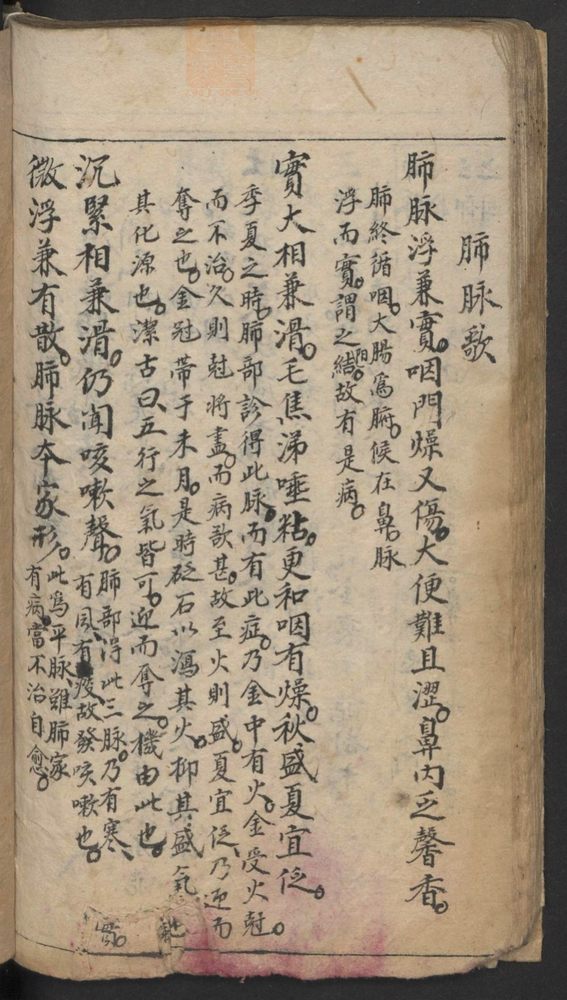 肺脉歌
肺脉浮兼實。咽門燥又傷。大便難且澀。鼻内乏馨香。
肺終循咽。大腸爲腑。候在鼻。脉
浮而實。謂之陽結。故有是病。
實大相兼滑。毛焦涕唾粘。更和咽有燥。秋盛夏宜作。
季夏之時。肺部診得此脉。而有此症。乃金中有火。金受火尅。
而不治。久則尅將盡。而病欷甚。故至火則盛。夏宜作。乃迎而
奪之也。金冠帶于未月。是時砭石以瀉其火。抑其盛氣
其化源也。潔古曰五行之氣皆可迎而奪之。機由此也。
沉緊相兼滑。仍聞咳嗽聲。肺部得此三脉。乃有寒、
有風、有痰。故發咳嗽也。
微浮兼有散。肺脉夲家形。此爲平脉。雖肺家
有病。當不治自愈。